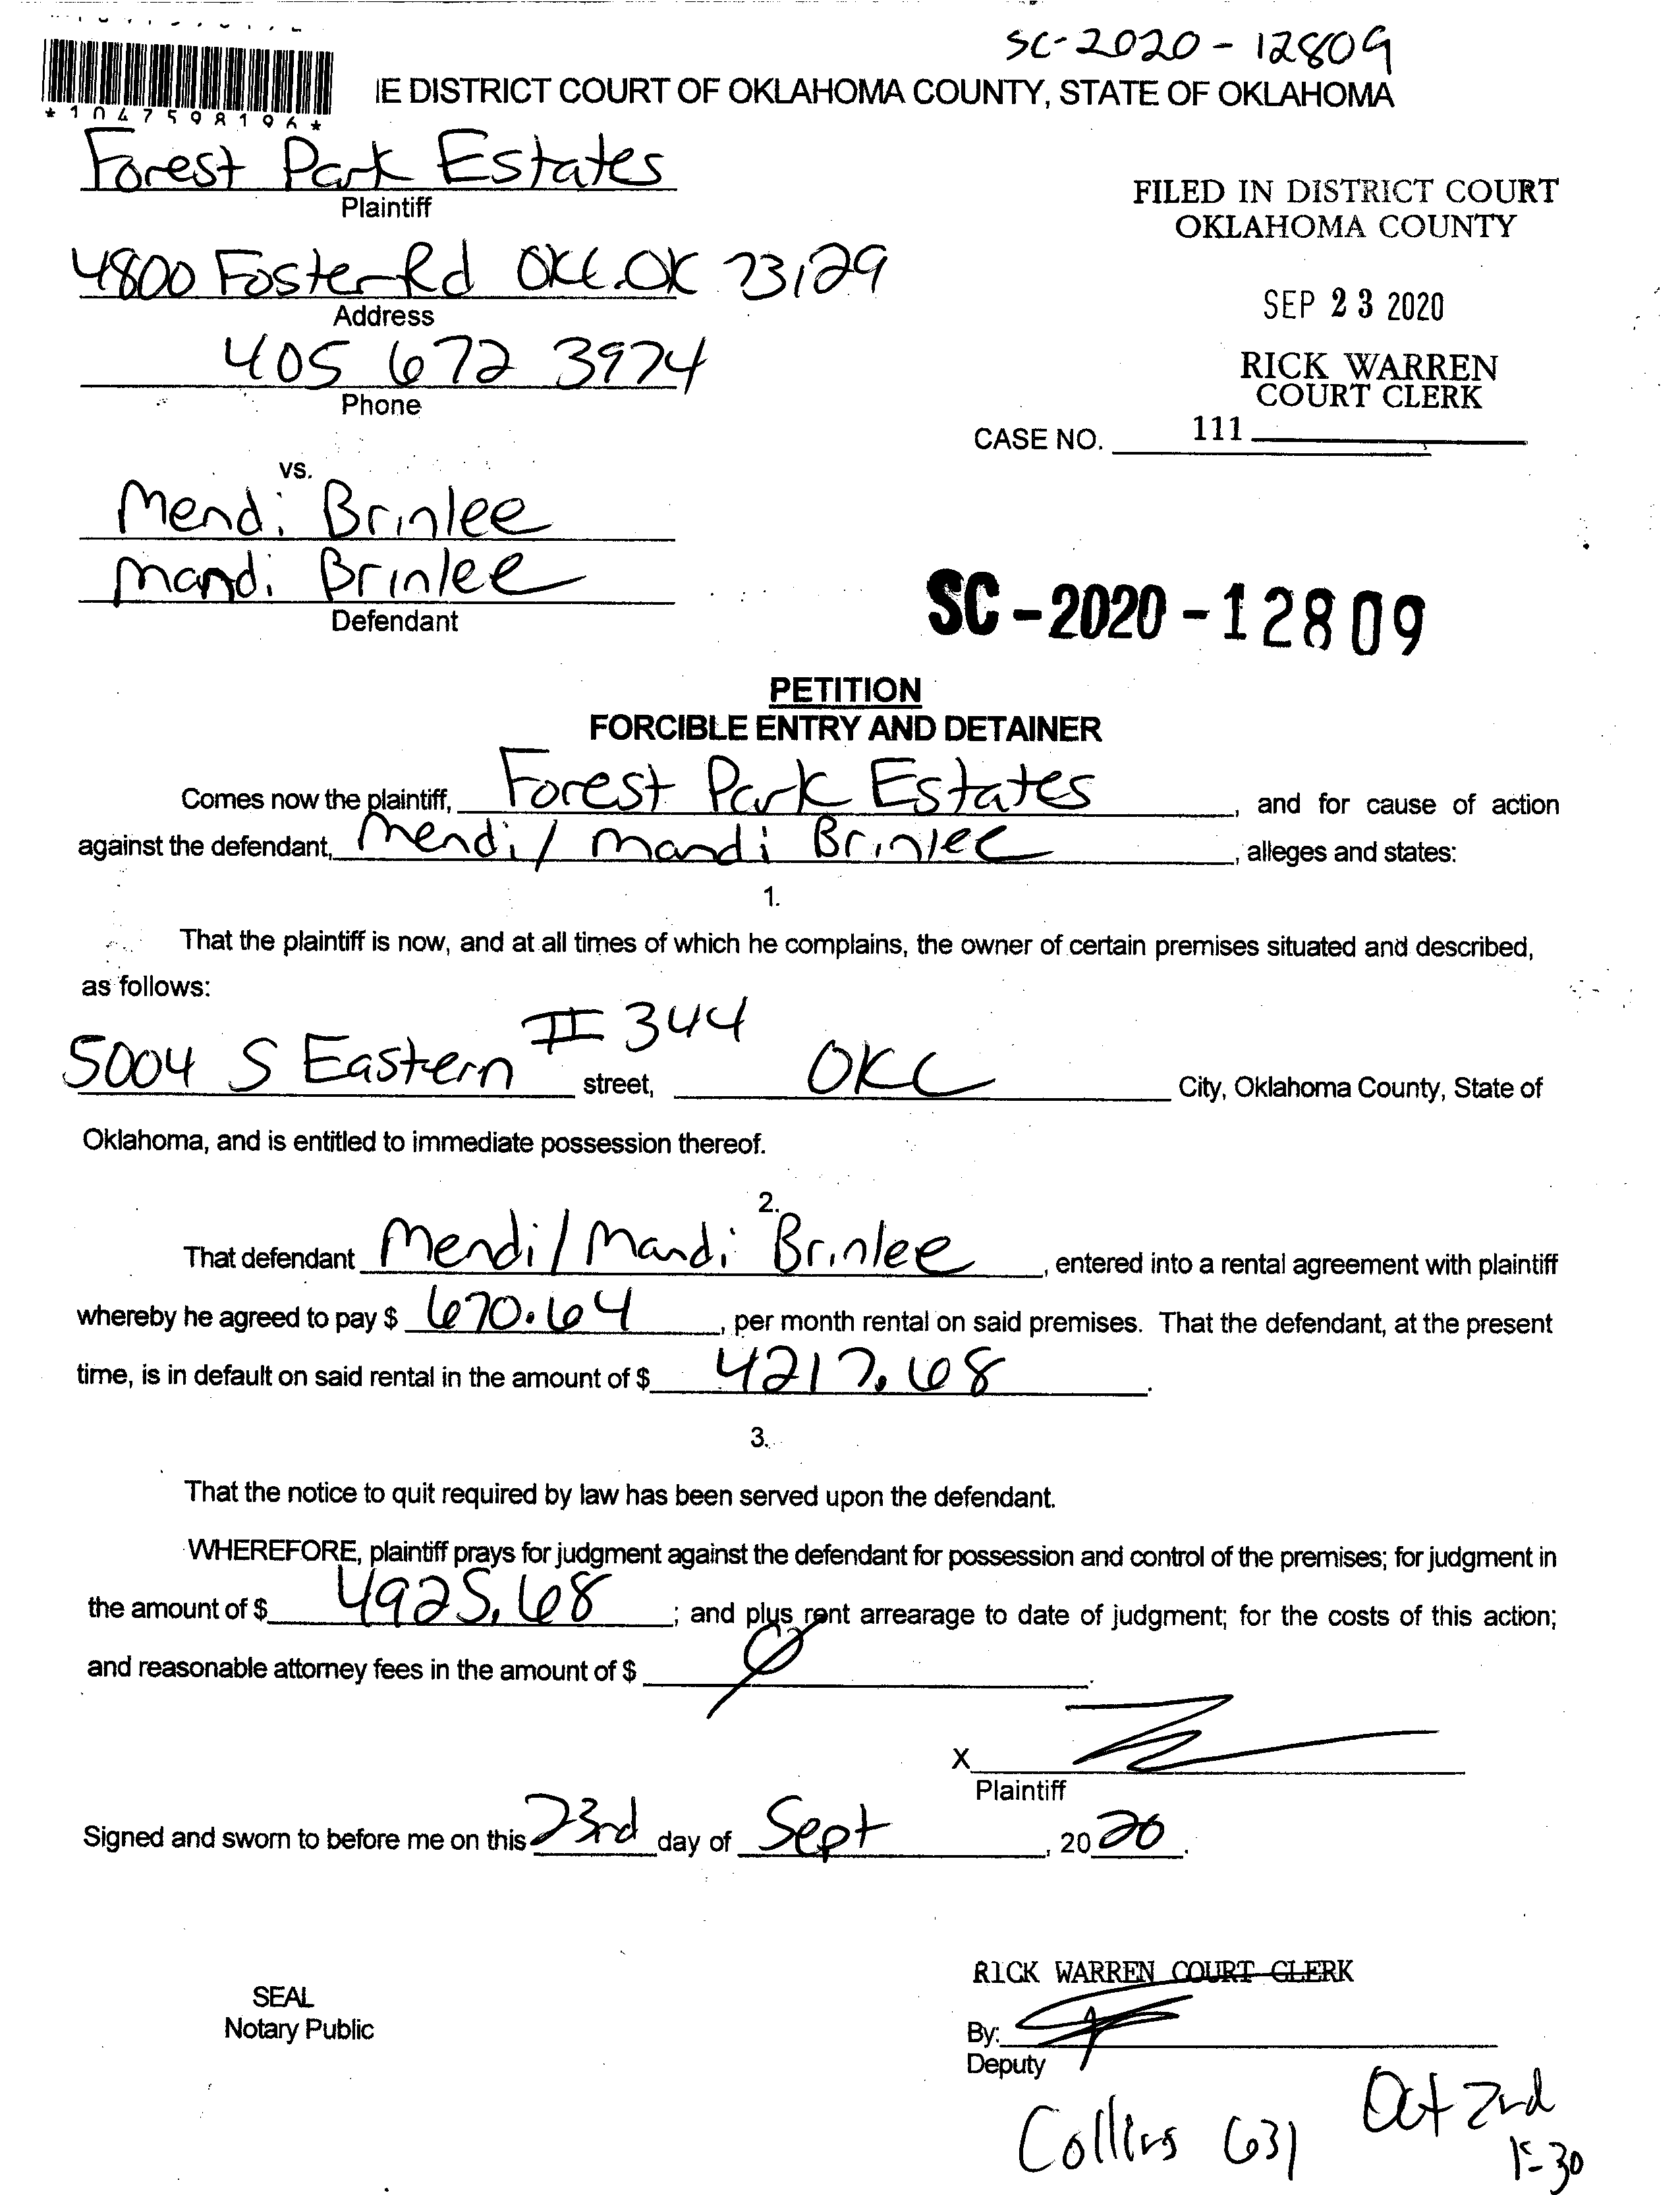 SC-2020-12809
*1047598196*
IE DISTRICT COURT OF OKLAHOMA COUNTY, STATE OF OKLAHOMA
Forest Park Estates
Plaintiff
FILED IN DISTRICT COURT
OKLAHOMA COUNTY
4800 Foster Rd OKC.OK 73129
Address
SEP 23 2020
405 672 3974
Phone
RICK WARREN
COURT CLERK
CASE NO. 111
vs.
Mendi Brinlee
Mandi Brinlee
Defendant
SC-2020-12809
PETITION
FORCIBLE ENTRY AND DETAINER
Comes now the plaintiff, Forest Park Estates, and for cause of action
against the defendant, Mendi/Mandi Brinlee, alleges and states:
1.
That the plaintiff is now, and at all times of which he complains, the owner of certain premises situated and described,
as follows:
5004 S Eastern #344 street, OKC City, Oklahoma County, State of
Oklahoma, and is entitled to immediate possession thereof.
2.
That defendant Mendi/Mandi Brinlee, entered into a rental agreement with plaintiff
whereby he agreed to pay $ 670.64, per month rental on said premises. That the defendant, at the present
time, is in default on said rental in the amount of $ 4217.68.
3.
That the notice to quit required by law has been served upon the defendant.
WHEREFORE, plaintiff prays for judgment against the defendant for possession and control of the premises; for judgment in
the amount of $ 4925.68; and plus rent arrearage to date of judgment; for the costs of this action;
and reasonable attorney fees in the amount of $ Ø.
X
Plaintiff
Signed and sworn to before me on this 23rd day of Sept, 2020.
RICK WARREN COURT CLERK
SEAL
Notary Public
By:
Deputy
Collins 631 Oct 2nd
1:30